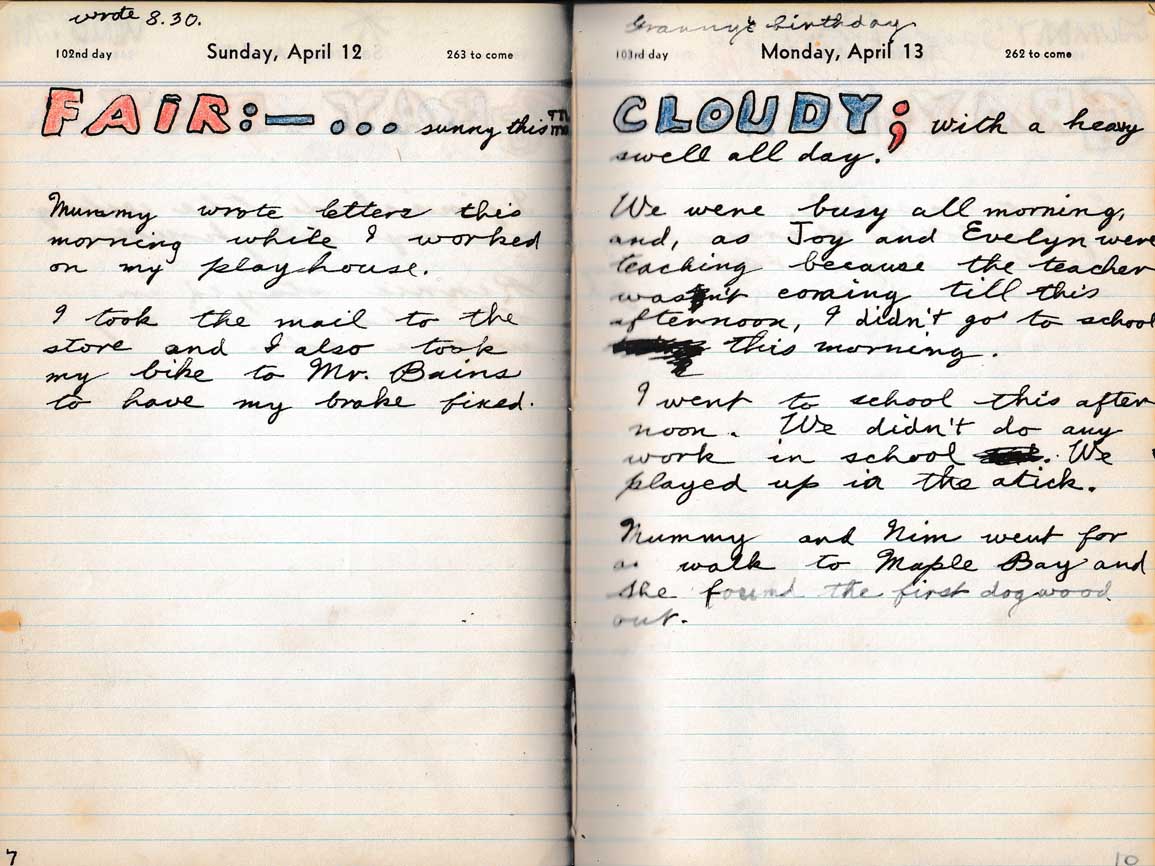 wrote 8.30.
102nd day Sunday, April 12 263 to come
FAIR:— ... sunny this
Mummy wrote letters this
morning while I worked
on my playhouse.
I took the mail to the
store and I also took
my bike to Mr. Bains
to have my brake fixed.
7
Granny's birthday
103rd day Monday, April 13 262 to come
CLOUDY; with a heavy
swell all day.
We were busy all morning,
and, as Joy and Evelyn were
teaching because the teacher
wasn't coming till this
afternoon, I didn't go to school
this morning.
I went to school this after
noon. We didn't do any
work in school. We
played up in the atick.
Mummy and Nim went for
a walk to Maple Bay and
she found the first dogwood
out.
10